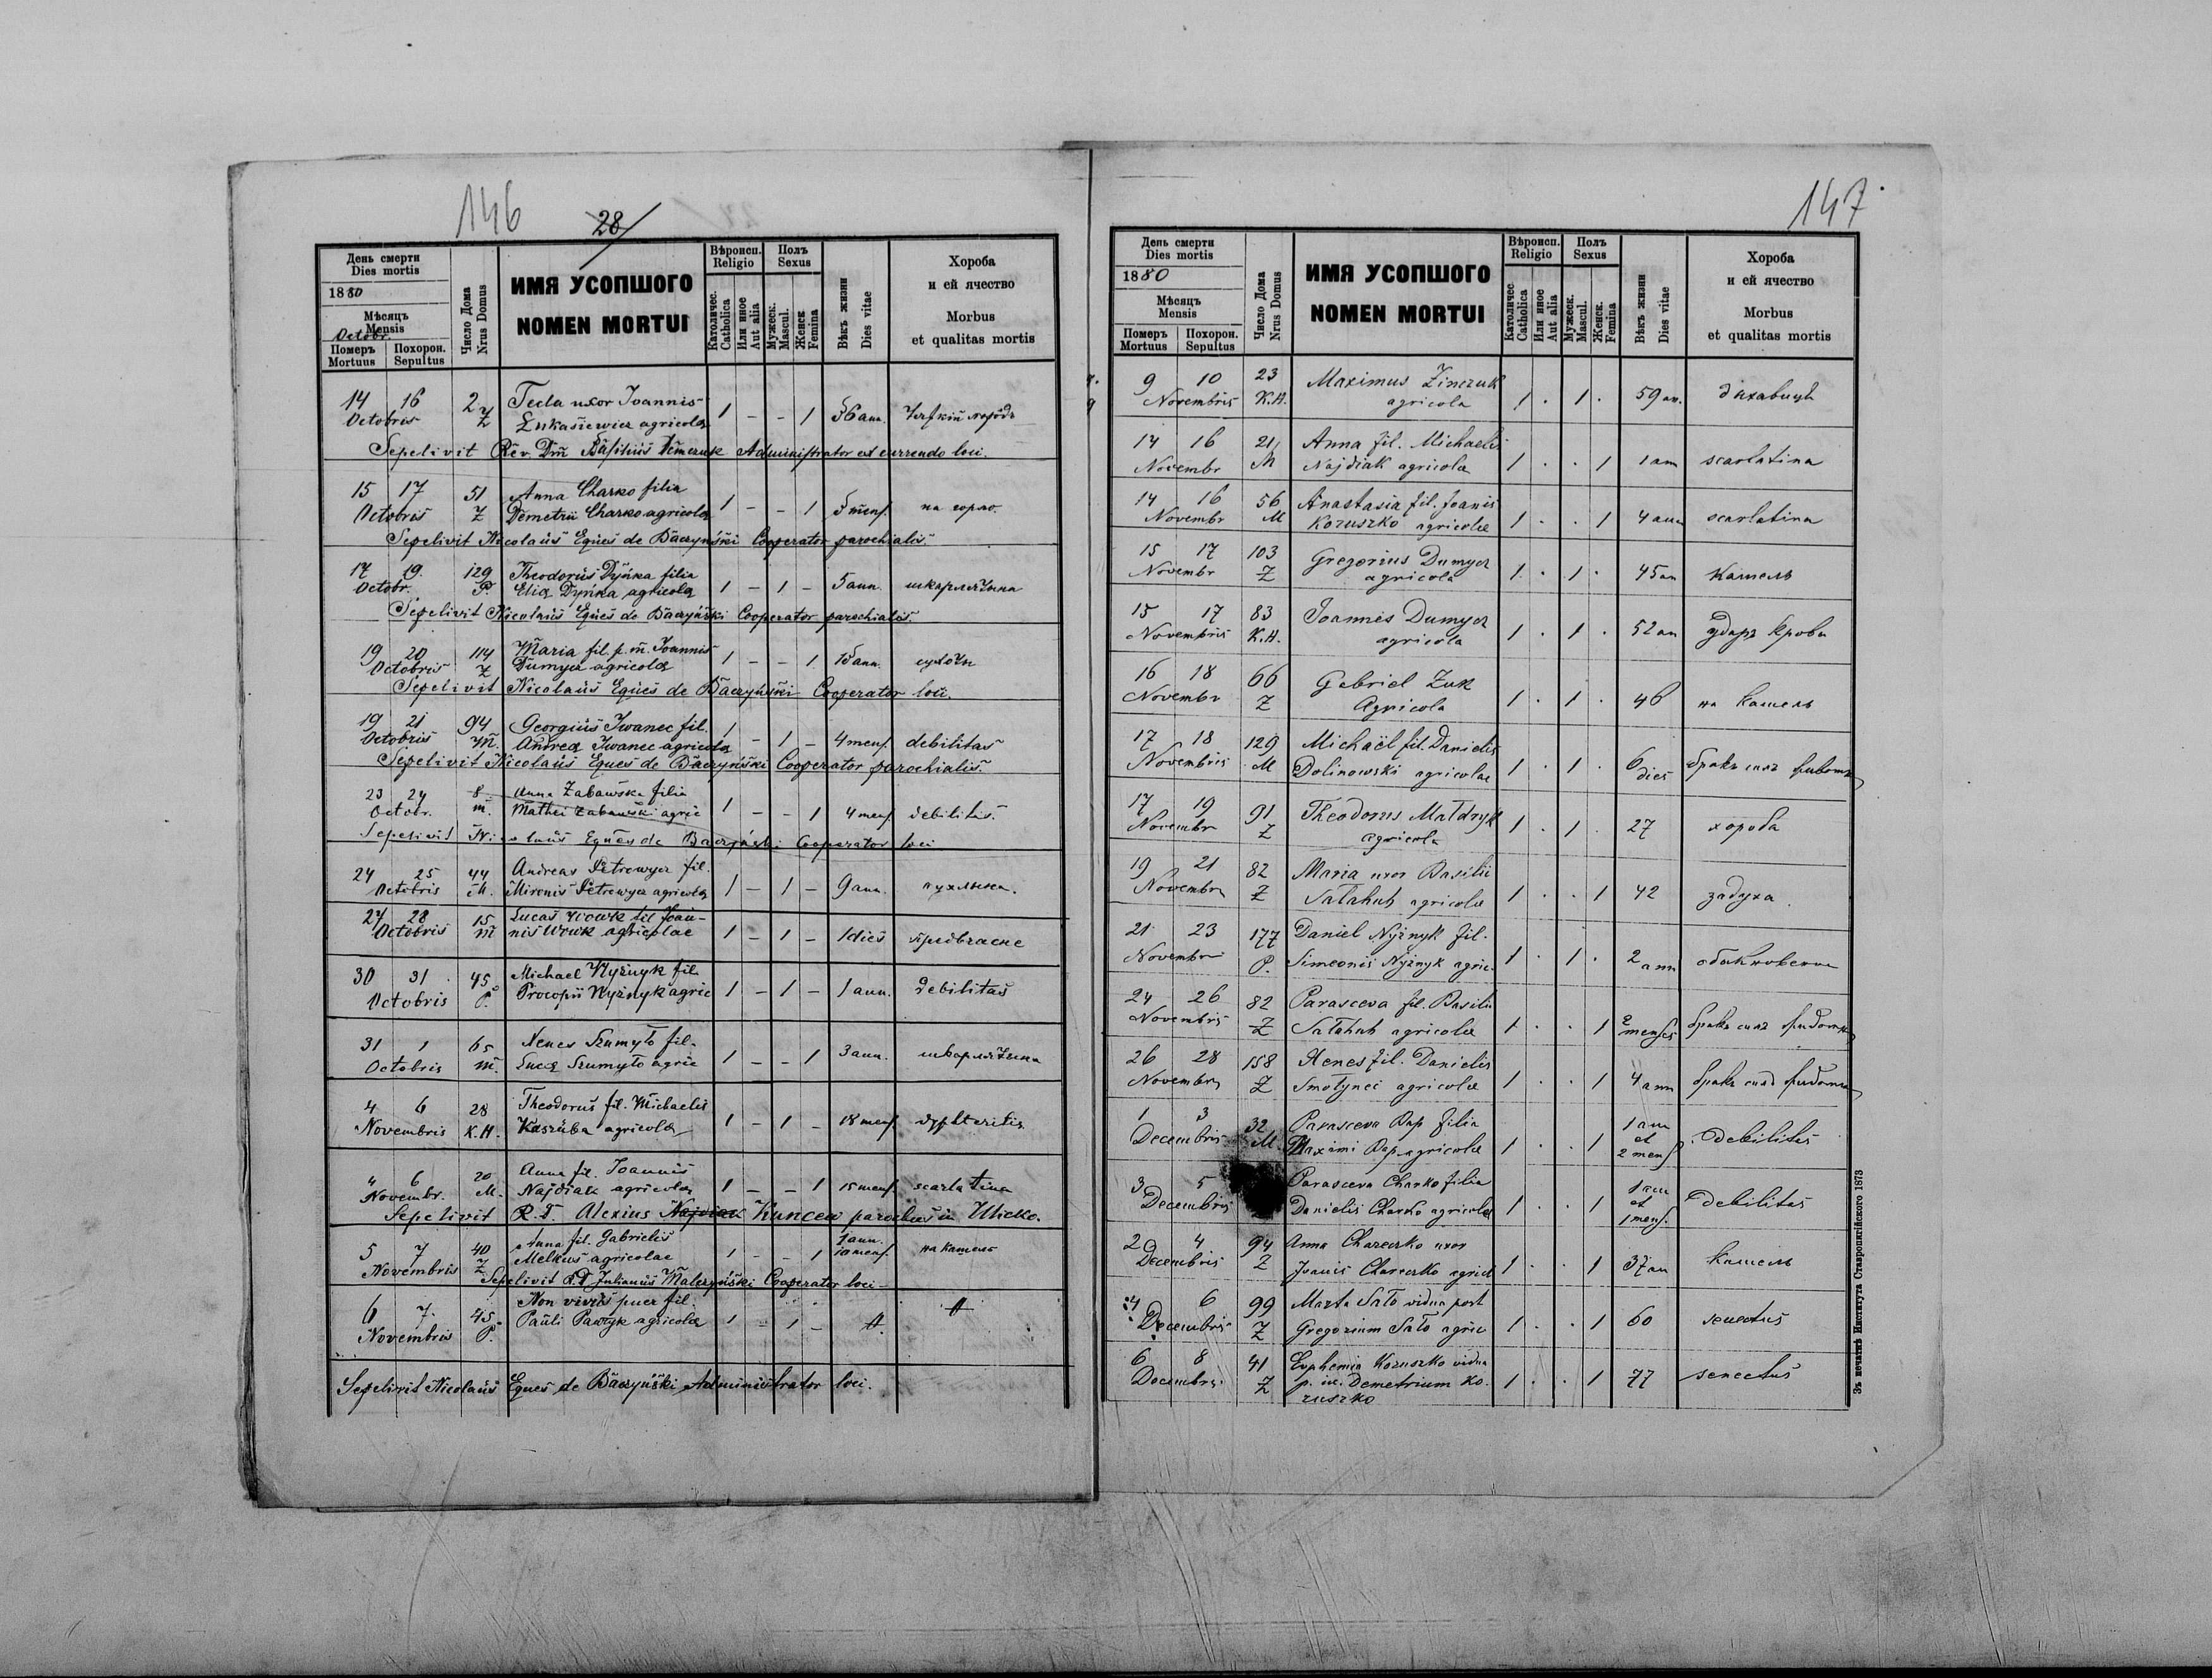 146
28/
День смерти
Dies mortis
1880
Мѣсяцъ
Mensis
Octobr.
Померъ Похорон.
Mortuus Sepultus
Число Дома
Nrus Domus
ИМЯ УСОПШОГО
NOMEN MORTUI
Вѣроисп.
Religio
Католичес.
Catholica
Или иное
Aut alia
Полъ
Sexus
Мужеск.
Mascul.
Женск.
Femina
Вѣкъ жизни
Dies vitae
Хороба
и ей ячество
Morbus
et qualitas mortis
14 16 2 Tecla uxor Joannis
Octobris Z Łukasiewicz agricolae 1 - - 1 56 ann.
Sepelivit Rev. Dm̄ Basilius Administrator ex currendo loci.
15 17 51 Anna Charko filia
Octobris Z Demetrii Charko agricolae 1 - - 1 5 mens. на горло
Sepelivit Nicolaus Eques de Baczyński Cooperator parochialis.
17 19. 129 Theodorus Dyńka filia
Octobr. P. Eliae Dyńka agricolae 1 - 1 - 5 ann. шкарлятина
Sepelivit Nicolaus Eques de Baczyński Cooperator parochialis.
19 20 114 Maria fil. p. m. Joannis
Octobris Z Dumycz agricolae 1 - - 1 ann. сухоты
Sepelivit Nicolaus Eques de Baczyński Cooperator loci.
19 21 94 Georgius Iwanec fil.
Octobris M. Andreae Iwanec agricolae 1 - 1 - 4 mens. debilitas
Sepelivit Nicolaus Eques de Baczyński Cooperator parochialis.
23 24 8 Anna Zabawska filia
Octobr. m. Mathei Zabawski agric 1 - - 1 4 mens. debilitas.
Sepelivit Nicolaus Eques de Baczyński Cooperator loci
24 25 44 Andreas Petrowycz fil.
Octobris M. Mironis Petrowycz agricolae 1 - 1 - 9 ann. пухлына.
27 28 15 Lucas Wowk fil Joan-
Octobris m nis Wowk agricolae 1 - 1 - 1 dies
30 31 45 Michael Nyżnyk fil.
Octobris P. Procopii Nyżnyk agric 1 - 1 - 1 ann. debilitas
31 1 65 Xenes Szumyło fil.
Octobris m. Lucae Szumyło agric 1 - - 1 3 ann. шкарлятина
4 6 28 Theodorus fil. Michaelis
Novembris K.H. Kaszuba agricolae 1 - 1 - 18 mens. dyphteritis
4 6 20 Anna fil. Joannis
Novembr. M. Najdiak agricolae 1 - - 1 15 mens. scarlatina
Sepelivit R. D. Alexius Najdiak Kuncew parochus in Ulicko.
5 7 40 Anna fil. Gabrielis 1 ann.
Novembris Z Melkus agricolae 1 - - 1 10 mens. на кашель
Sepelivit R. D Julianus Malczyński Cooperator loci
6 7. 45 Non vivus puer fil.
Novembris P. Pauli Pawlyk agricolae 1 - 1 -
Sepelivit Nicolaus Eques de Baczyński Administrator loci.
147
День смерти
Dies mortis
1880
Мѣсяцъ
Mensis
Померъ Похорон.
Mortuus Sepultus
Число Дома
Nrus Domus
ИМЯ УСОПШОГО
NOMEN MORTUI
Вѣроисп.
Religio
Католичес.
Catholica
Или иное
Aut alia
Полъ
Sexus
Мужеск.
Mascul.
Женск.
Femina
Вѣкъ жизни
Dies vitae
Хороба
и ей ячество
Morbus
et qualitas mortis
9 10 23 Maximus Zinczuk
Novembris K.H. agricola 1 . 1 . 59 an. дихавиця
14 16 21 Anna fil. Michaelis
Novembr M Najdiak agricolae 1 . . 1 1 ann scarlatina
14 16 56 Anastasia fil. Joanis
Novembr M Kozuszko agricolae 1 . . 1 4 ann scarlatina
15 17 103 Gregorius Dumycz
Novembr Z agricola 1 . 1 . 45 an кашель
15 17 83 Joannes Dumycz
Novembris K.H. agricola 1 . 1 . 52 an ударъ крови
16 18 66 Gabriel Zuk
Novembr Z Agricola 1 . 1 . 46 на кашель
17 18 129 Michaël fil. Danielis
Novembris M Dolinowski agricolae 1 . 1 . 6 dies бракъ силъ
17 19 91 Theodorus Małdryk
Novembr Z agricola 1 . 1 . 27 хороба
19 21 82 Maria uxor Basilii
Novembr Z Sałahub agricolae 1 . . 1 42 задуха.
21 23 177 Daniel Nyżnyk fil.
Novembr P. Simeonis Nyżnyk agric. 1 . 1 . 2 ann
24 26 82 Parasceva fil. Basilii
Novembris Z Sałahub agricolae 1 . . 1 2 menses бракъ силъ
26 28 158 Xenes fil. Danielis
Novembr Z Smolynec agricolae 1 . . 1 4 ann бракъ силъ
1 3 32 Parasceva Bap filia 1 ann
Decembris M Maximi Bap agricolae 1 . . 1 et 2 mens debilitas
3 5 Parasceva Charko filia 1 ann
Decembris Danielis Charko agricolae 1 . . 1 et 1 mens. debilitas
2 4 94 Anna Chareczko uxor
Decembris Z Joanis Chareczko agricol 1 . . 1 37 an кашель
4 6 99 Marta Sało vidua post
Decembris Z Gregorium Sało agric 1 . . 1 60 senectus
6 8 41 Euphemia Kozuszko vidua
Decembris. Z p. m. Demetrium Ko- 1 . . 1 77 senectus
zuszko
Зъ печатнѣ Института Ставропигійского 1873